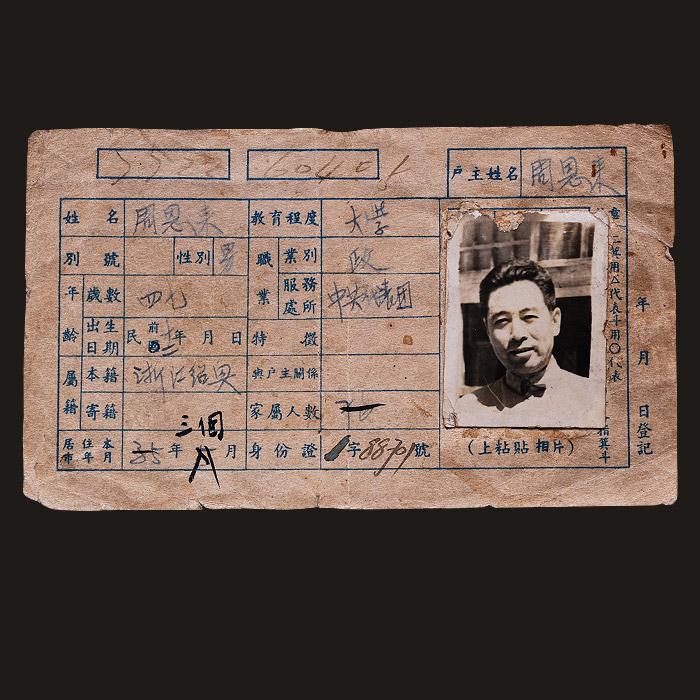 戶主姓名 周恩来
姓名 周恩来 教育程度 大学
別號 性別 男 職業 業別 政
年齡 歲數 四七 服務處所 中央
出生日期 民前 年 月 日 特徵
屬籍 本籍 浙江绍兴 與戶主關係
寄籍 家屬人數
三個
居住本市年月 35 年 月 月 身份證 字 88701 號
(上粘貼相片)
箕用△代表斗用○代表
指箕斗
年 月 日登記